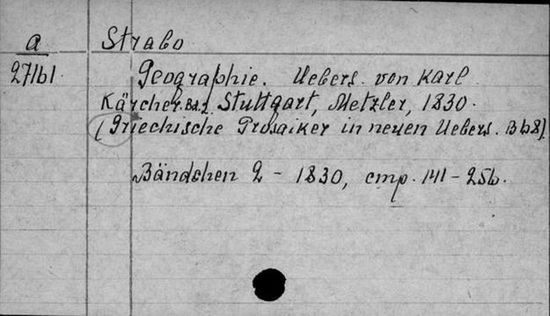 a
27161
Strabo
Geographie. Uebers. von Karl
Kärcher. Bd. 2. Stuttgart, Metzler, 1830.
(Griechische Prosaiker in neuen Uebers. B 68)
Bändchen 2 - 1830, стр. 141 - 256.